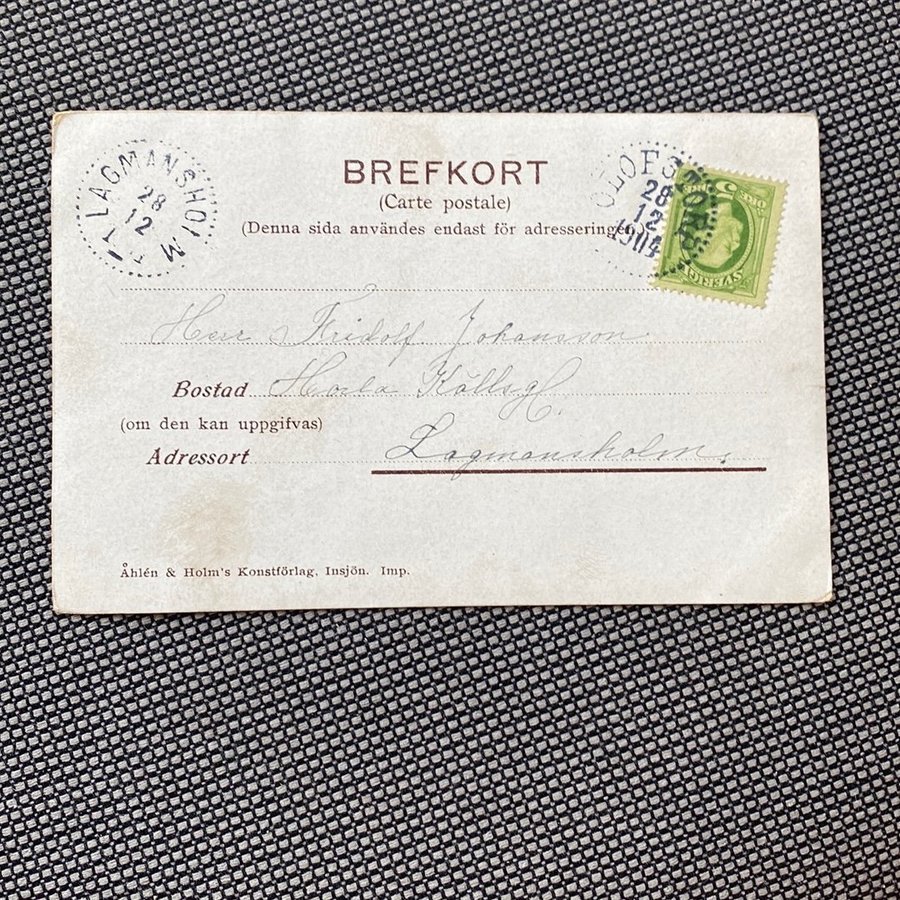 LAGMANSHOLM
28
12
BREFKORT
(Carte postale)
(Denna sida användes endast för adresseringen.)
OLOFSTORP
28
12
1904
5
ÖRE
SVERIGE
Herr Fridolf. Johansson
Bostad Horla Källsg.
(om den kan uppgifvas)
Adressort Lagmansholm.
Åhlén & Holm's Konstförlag, Insjön. Imp.